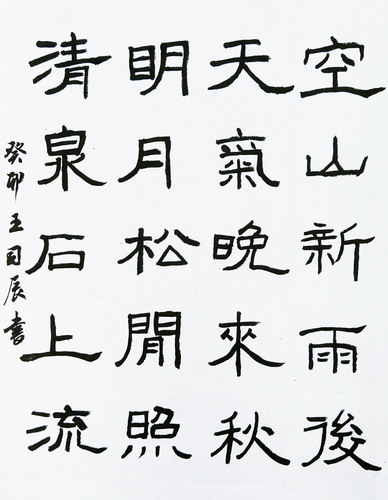 空山新雨後
天氣晚來秋
明月松閒照
清泉石上流
癸卯王司辰書